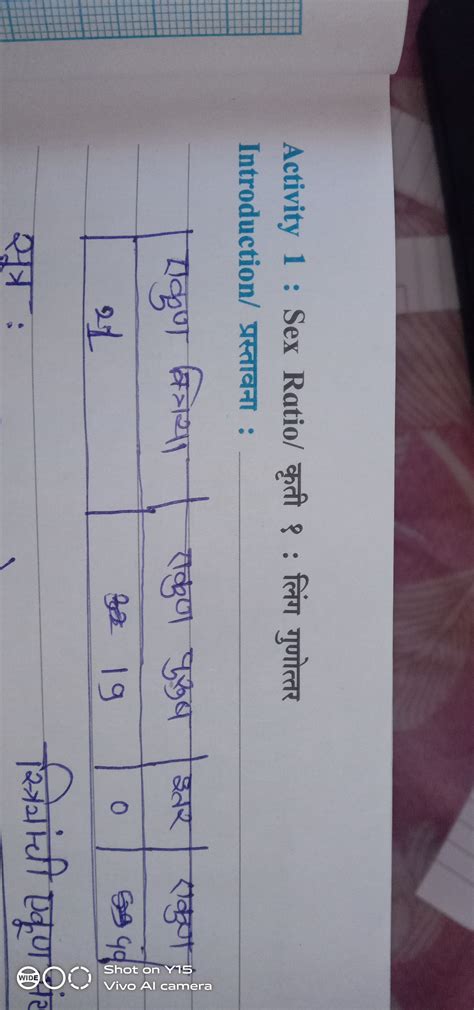 Activity 1 : Sex Ratio/ कृती १ : लिंग गुणोत्तर
Introduction/ प्रस्तावना :
एकुण स्त्रिया एकुण पुरुष इतर एकुण
19 0
सूत्र :
स्त्रियांची एकूण
WIDE
Shot on Y15
Vivo AI camera